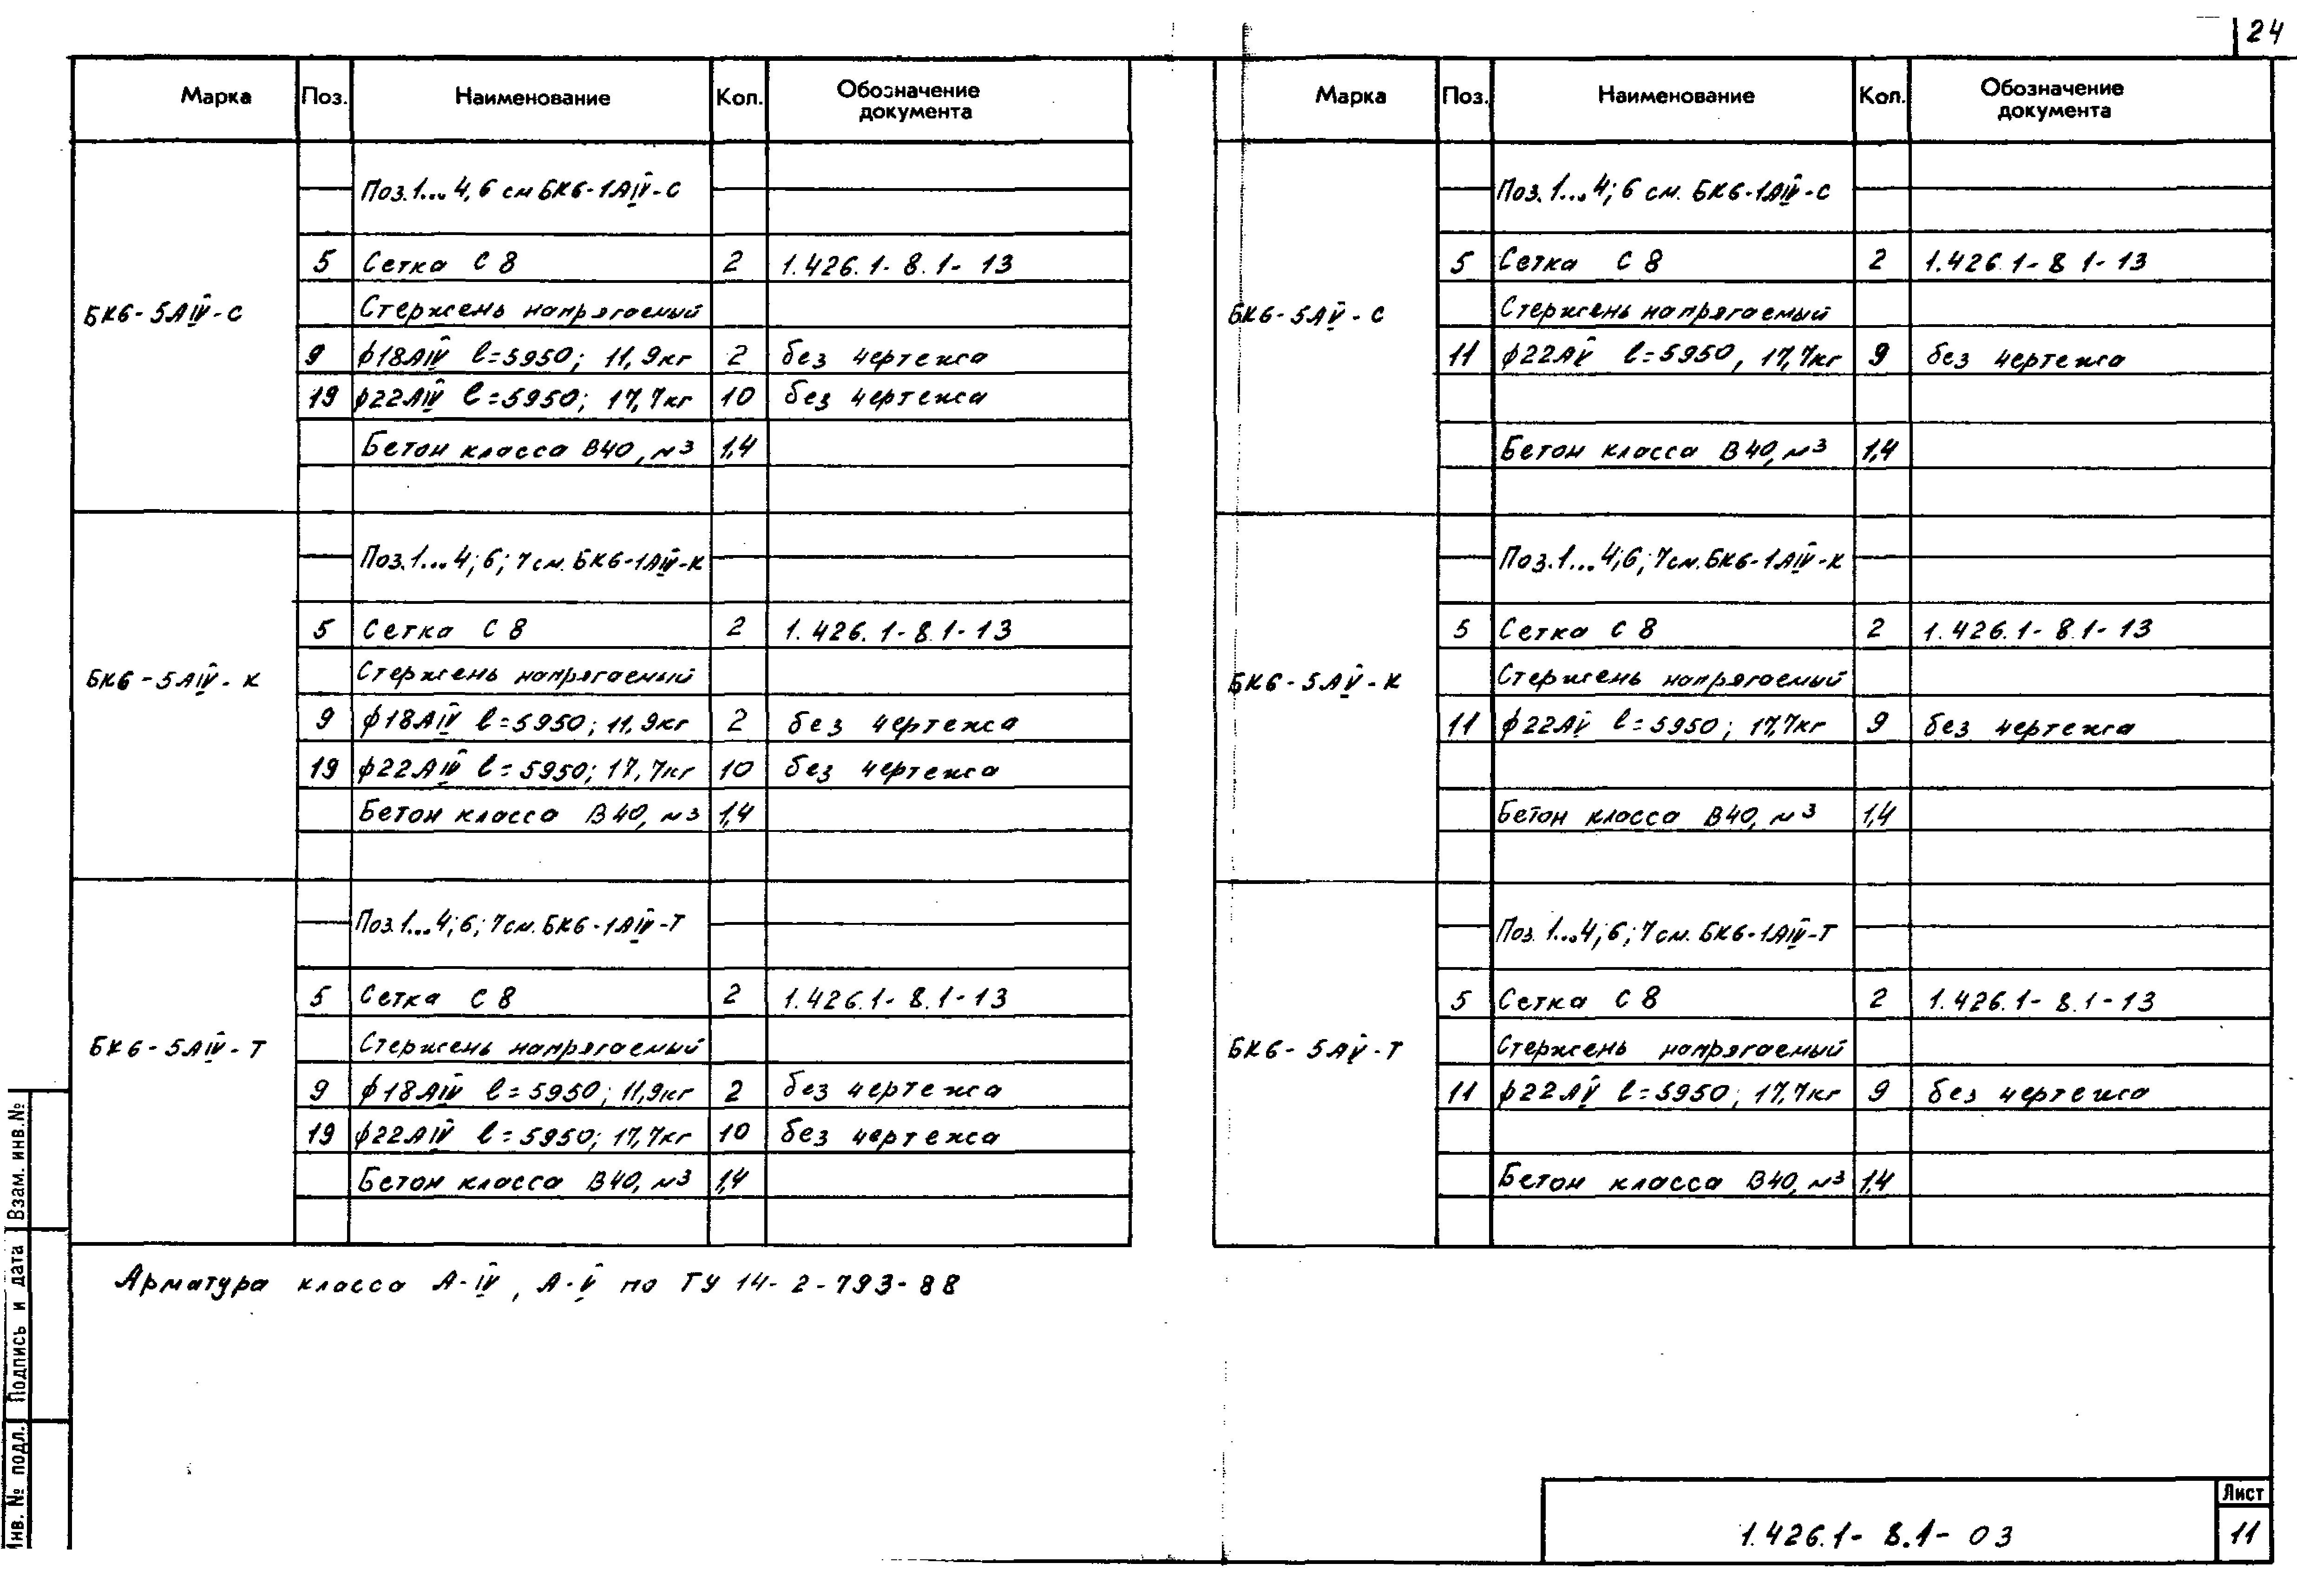 24
Марка Поз. Наименование Кол. Обозначение документа
Поз.1...4,6 см БК6-1АIV-С
5 Сетка С8 2 1.426.1-8.1-13
БК6-5АIV-С
Стержень напрягаемый
9 ф18АIV ℓ=5950; 11,9кг 2 без чертежа
19 ф22АIV ℓ=5950; 17,7кг 10 без чертежа
Бетон класса В40, м³ 1,4
Поз.1...4;6;7см. БК6-1АIV-К
5 Сетка С8 2 1.426.1-8.1-13
БК6-5АIV-К
Стержень напрягаемый
9 ф18АIV ℓ=5950; 11,9кг 2 без чертежа
19 ф22АIV ℓ=5950; 17,7кг 10 без чертежа
Бетон класса В40, м³ 1,4
Поз.1...4;6;7см. БК6-1АIV-Т
5 Сетка С8 2 1.426.1-8.1-13
БК6-5АIV-Т
Стержень напрягаемый
9 ф18АIV ℓ=5950; 11,9кг 2 без чертежа
19 ф22АIV ℓ=5950; 17,7кг 10 без чертежа
Бетон класса В40, м³ 1,4
Арматура класса А-IV, А-V по ТУ 14-2-793-88
Марка Поз. Наименование Кол. Обозначение документа
Поз.1...4;6 см. БК6-1АIV-С
5 Сетка С8 2 1.426.1-8 1-13
БК6-5АV-С
Стержень напрягаемый
11 ф22АV ℓ=5950, 17,7кг 9 без чертежа
Бетон класса В40, м³ 1,4
Поз.1...4;6;7см. БК6-1АIV-К
5 Сетка С8 2 1.426.1-8.1-13
БК6-5АV-К
Стержень напрягаемый
11 ф22АV ℓ=5950; 17,7кг 9 без чертежа
Бетон класса В40, м³ 1,4
Поз 1...4;6;7см. БК6-1АIV-Т
5 Сетка С8 2 1.426.1-8.1-13
БК6-5АV-Т
Стержень напрягаемый
11 ф22АV ℓ=5950; 17,7кг 9 без чертежа
Бетон класса В40, м³ 1,4
Взам. инв.№
Подпись и дата
Инв. № подл.
1.426.1-8.1-03
Лист
11